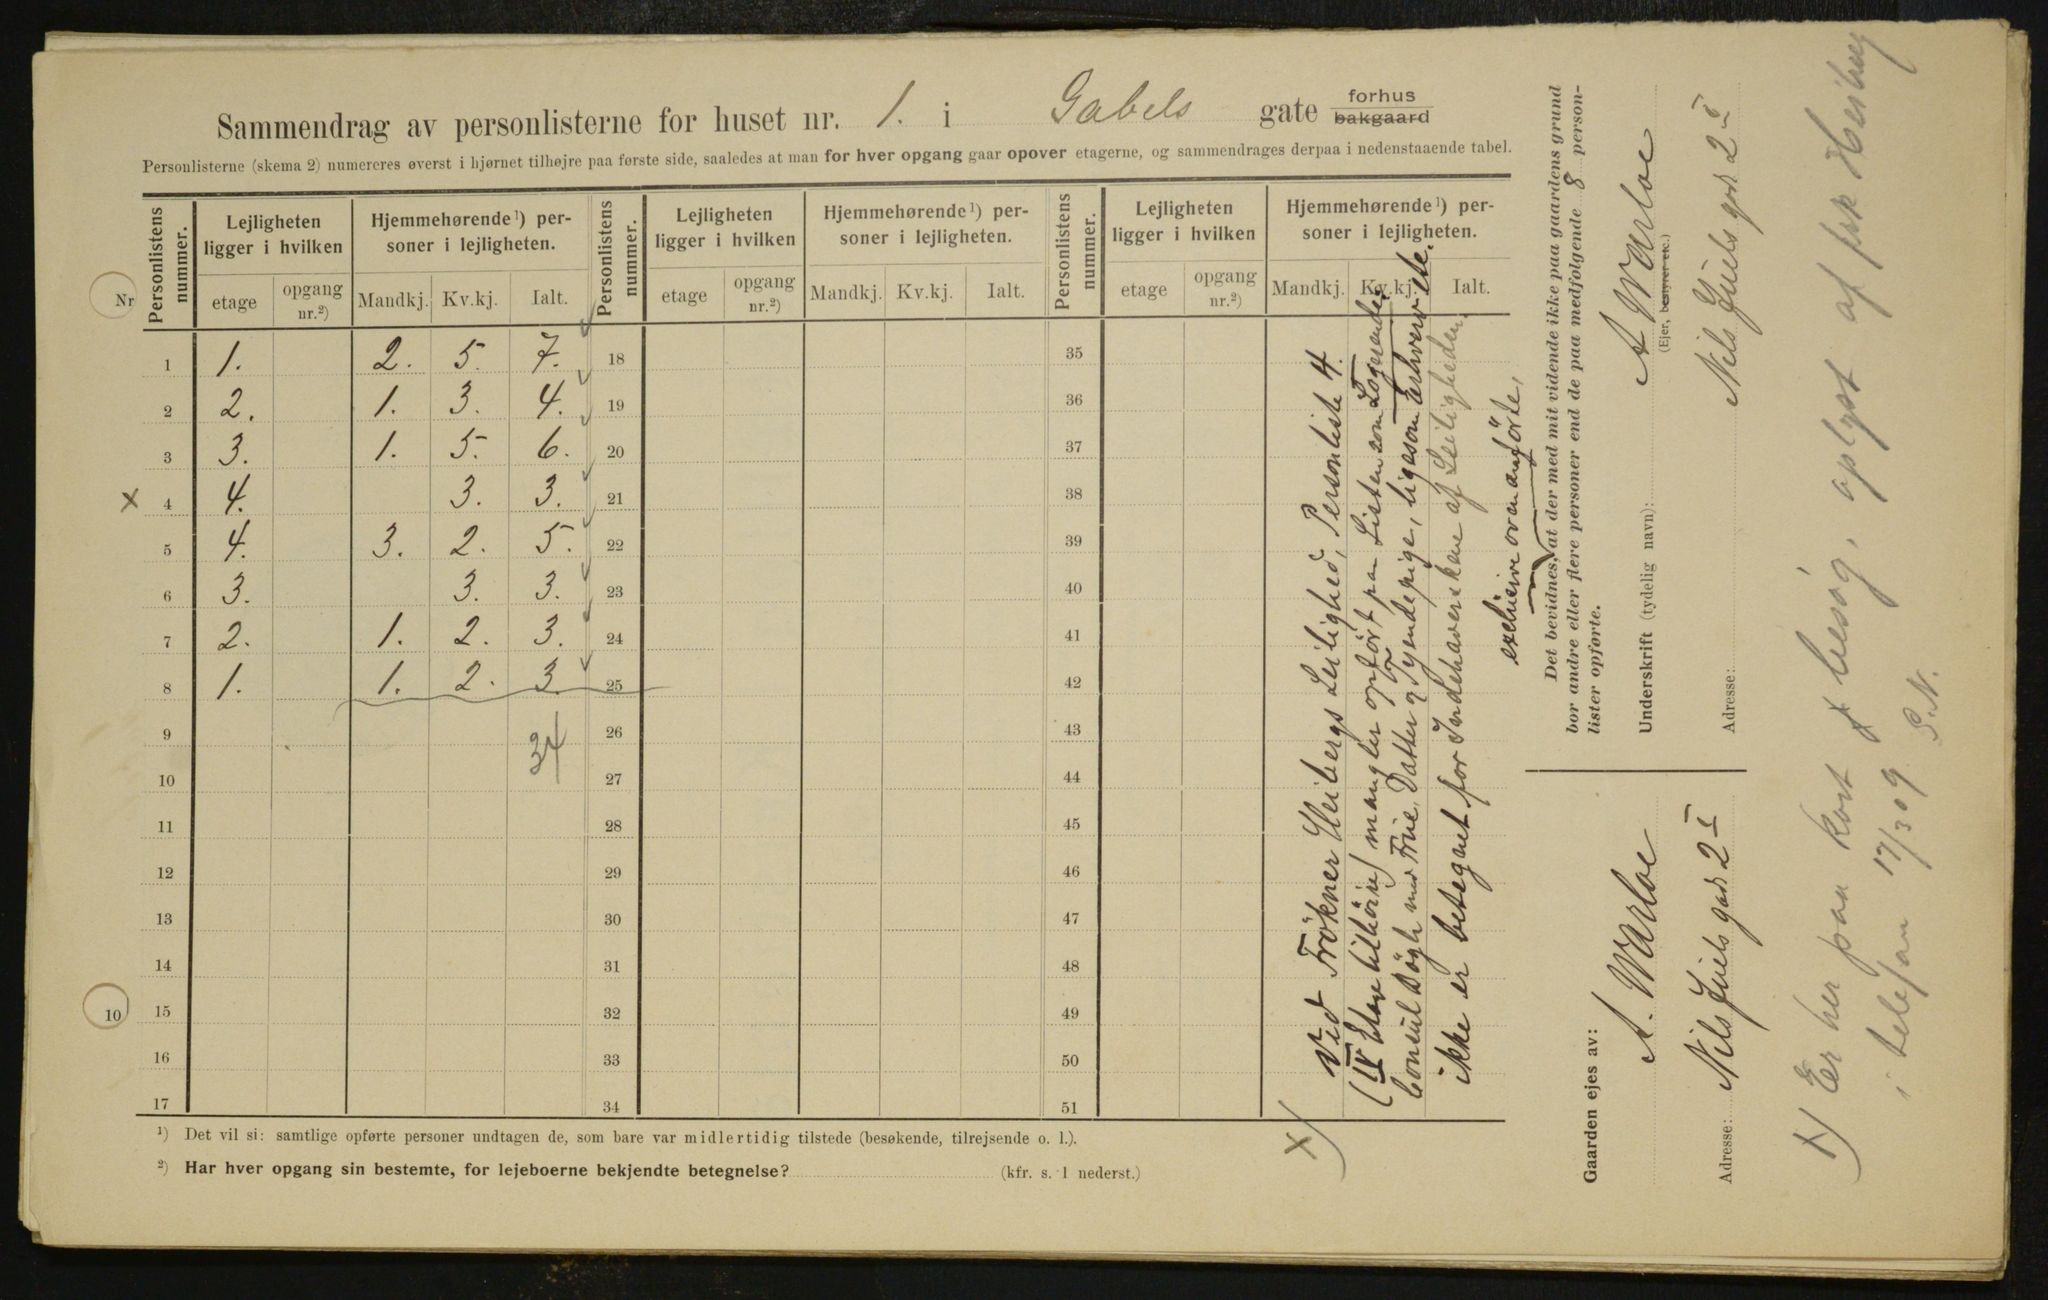 Sammendrag av personlisterne for huset nr. 1. i Gabels gate forhus bakgaard
Personlisterne (skema 2) numereres øverst i hjørnet tilhøjre paa første side, saaledes at man for hver opgang gaar opover etagerne, og sammendrages derpaa i nedenstaaende tabel.
Personlistens nummer. Lejligheten ligger i hvilken Hjemmehørende ¹) personer i lejligheten. Personlistens nummer. Lejligheten ligger i hvilken Hjemmehørende ¹) personer i lejligheten. Personlistens nummer. Lejligheten ligger i hvilken Hjemmehørende ¹) personer i lejligheten.
Nr etage opgang nr.²) Mandkj. Kv.kj. Ialt. etage opgang nr.²) Mandkj. Kv.kj. Ialt. etage opgang nr.²) Mandkj. Kv.kj. Ialt.
1 1. 2. 5. 7. 18 35
2 2. 1. 3. 4. 19 36
3 3. 1. 5. 6. 20 37
x 4 4. 3. 3. 21 38
5 4. 3. 2. 5. 22 39
6 3. 3. 3. 23 40
7 2. 1. 2. 3. 24 41
8 1. 1. 2. 3. 25 42
9 34 26 43
10 27 44
11 28 45
12 29 46
13 30 47
14 31 48
10 15 32 49
16 33 50
17 34 51
¹) Det vil si: samtlige opførte personer undtagen de, som bare var midlertidig tilstede (besøkende, tilrejsende o. l.).
²) Har hver opgang sin bestemte, for lejeboerne bekjendte betegnelse? (kfr. s. 1 nederst.)
x) Ved Frökner Heibergs Leilighed, Personliste 4.
(IV Etage tilhöire) mangler opført paa Listen som Logerende:
Consul Bögh med Frue, Datter og Tyendepige, ligesom Erhverv etc.
ikke er betegnet for Indehaverskene af Leiligheden.
exclusive ovenanførte,
Det bevidnes, at der med mit vidende ikke paa gaardens grund
bor andre eller flere personer end de paa medfølgende 8 person-
lister opførte.
Underskrift (tydelig navn): A Warloe
(Ejer, bestyrer etc.)
Adresse: Nils Juels gad 2 I
Gaarden ejes av:
A. Warloe
Adresse: Nils Juels gad 2 I
x) Er her paa kort besøg, oplyst af frk Heiberg
i telefon 17/3 09 S.N.